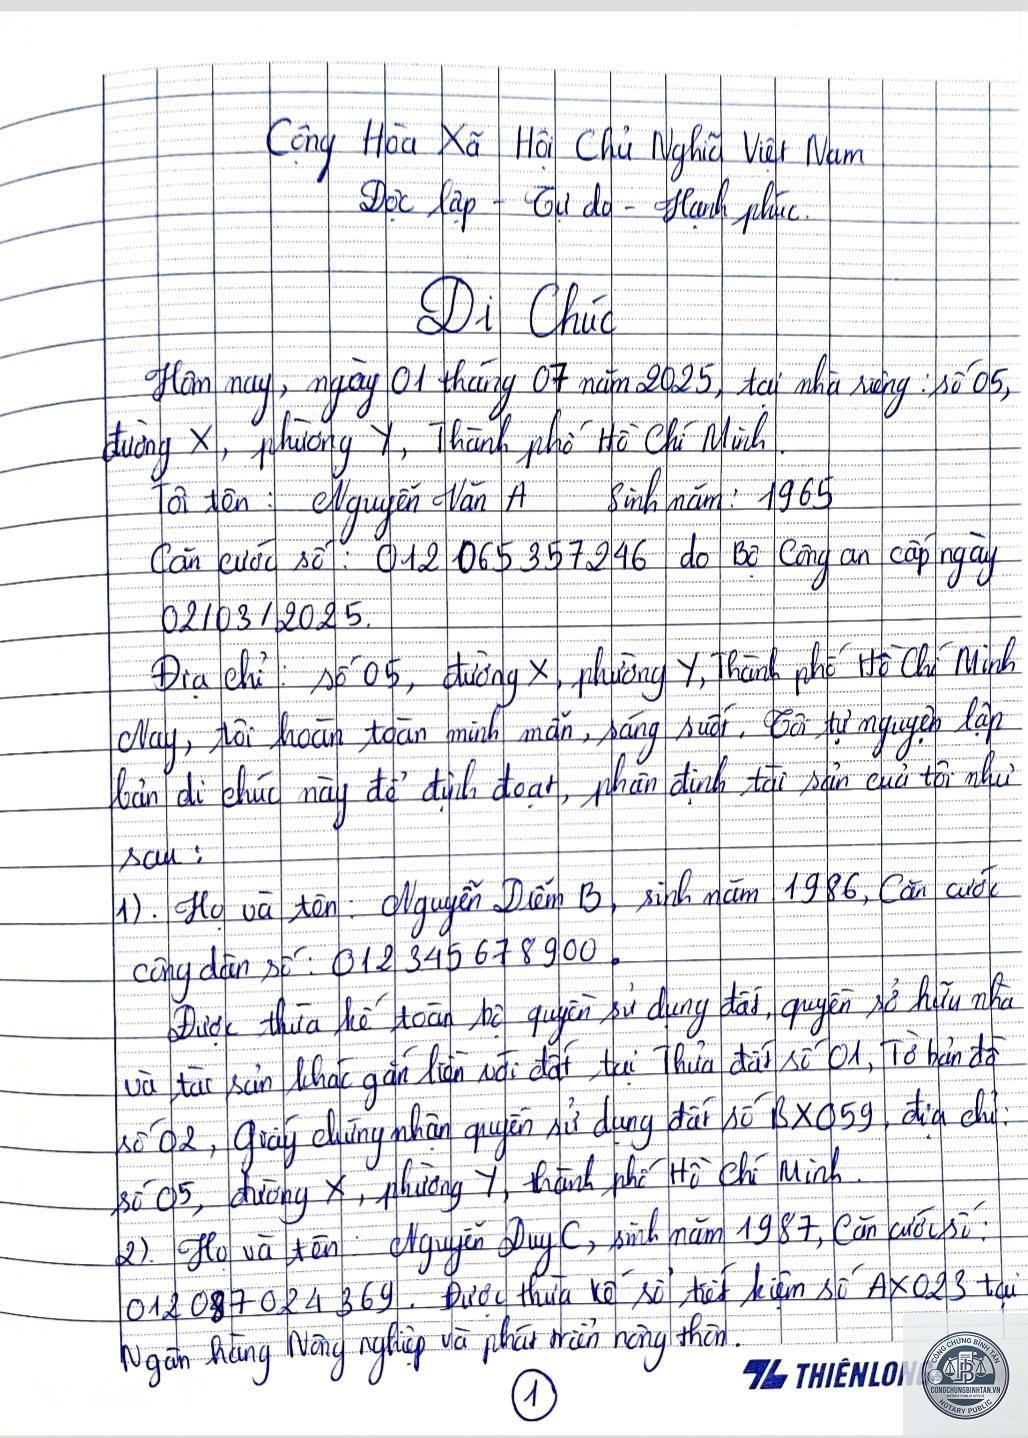 Cộng Hòa Xã Hội Chủ Nghĩa Việt Nam
Độc lập - Tự do - Hạnh phúc.
Di Chúc
Hôm nay, ngày 01 tháng 07 năm 2025, tại nhà riêng: số 05,
đường X, phường Y, Thành phố Hồ Chí Minh.
Tôi tên: Nguyễn Văn A Sinh năm: 1965
Căn cước số: 012 065 357 246 do Bộ Công an cấp ngày
02/03/2025.
Địa chỉ: số 05, đường X, phường Y, Thành phố Hồ Chí Minh
Nay, tôi hoàn toàn minh mẫn, sáng suốt. Tôi tự nguyện lập
bản di chúc này để định đoạt, phân định tài sản của tôi như
sau:
1). Họ và tên: Nguyễn Diễm B, sinh năm 1986, Căn cước
công dân số: 012 345 678 900.
Được thừa kế toàn bộ quyền sử dụng đất, quyền sở hữu nhà
và tài sản khác gắn liền với đất tại Thửa đất số 01, Tờ bản đồ
số 02, Giấy chứng nhận quyền sử dụng đất số BX059, địa chỉ:
số 05, đường X, phường Y, thành phố Hồ Chí Minh.
2). Họ và tên: Nguyễn Duy C, sinh năm 1987, Căn cước số:
012 087 024 369. Được thừa kế sổ tiết kiệm số AX023 tại
Ngân hàng Nông nghiệp và phát triển nông thôn.
1
THIÊN LONG
CÔNG CHỨNG BÌNH TÂN
CONGCHUNGBINHTAN.VN
NOTARY PUBLIC OFFICE
NOTARY PUBLIC